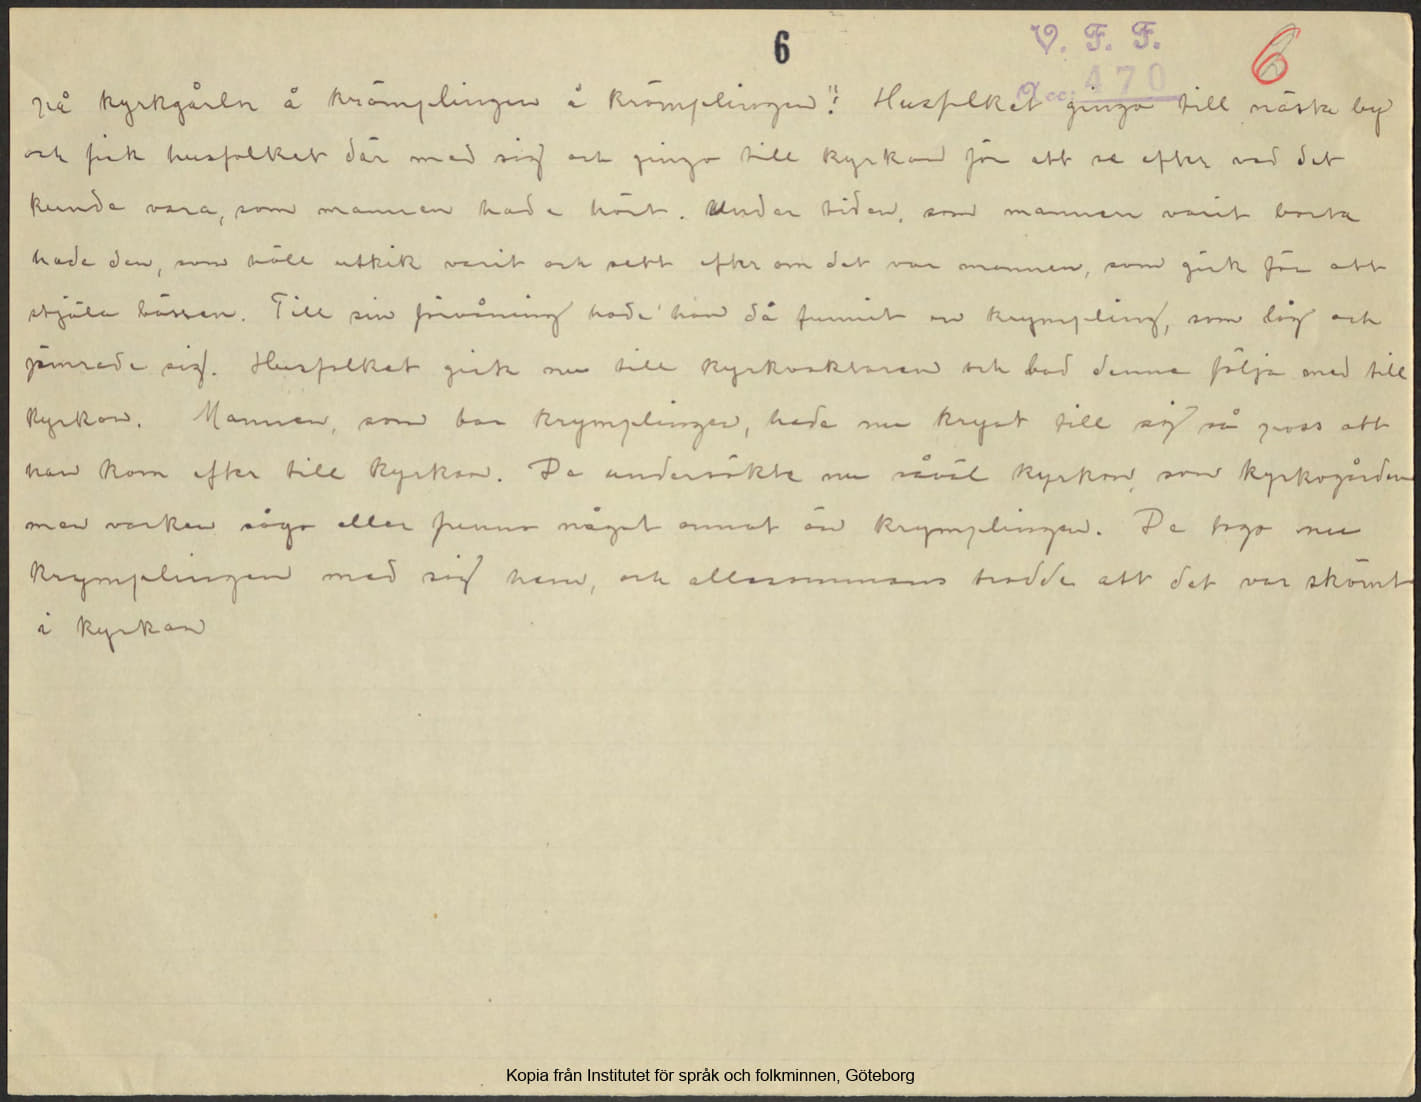 6
V. F. F.
Acc: 470
6
på kyrkgårln å krömplingen å krömplingen"! Husfolket gingo till nästa by
och fick husfolket där med sig och gingo till kyrkan för att se efter vad det
kunde vara, som mannen hade hört. Under tiden, som mannen varit borta
hade den, som höll utkik varit och sett efter om det var mannen, som gick för att
stjäla bössan. Till sin förvåning hade han då funnit en krympling, som låg och
jämrade sig. Husfolket gick nu till kyrkvaktaren och bad denne följa med till
kyrkan. Mannen, som bar krymplingen, hade nu kryat till sig så pass att
han kom efter till kyrkan. De undersökte nu såväl kyrkan som kyrkogården
men varken sågo eller funno något annat än krymplingen. De togo nu
krymplingen med sig hem, och allesammans trodde att det var skömt
i kyrkan
Kopia från Institutet för språk och folkminnen, Göteborg